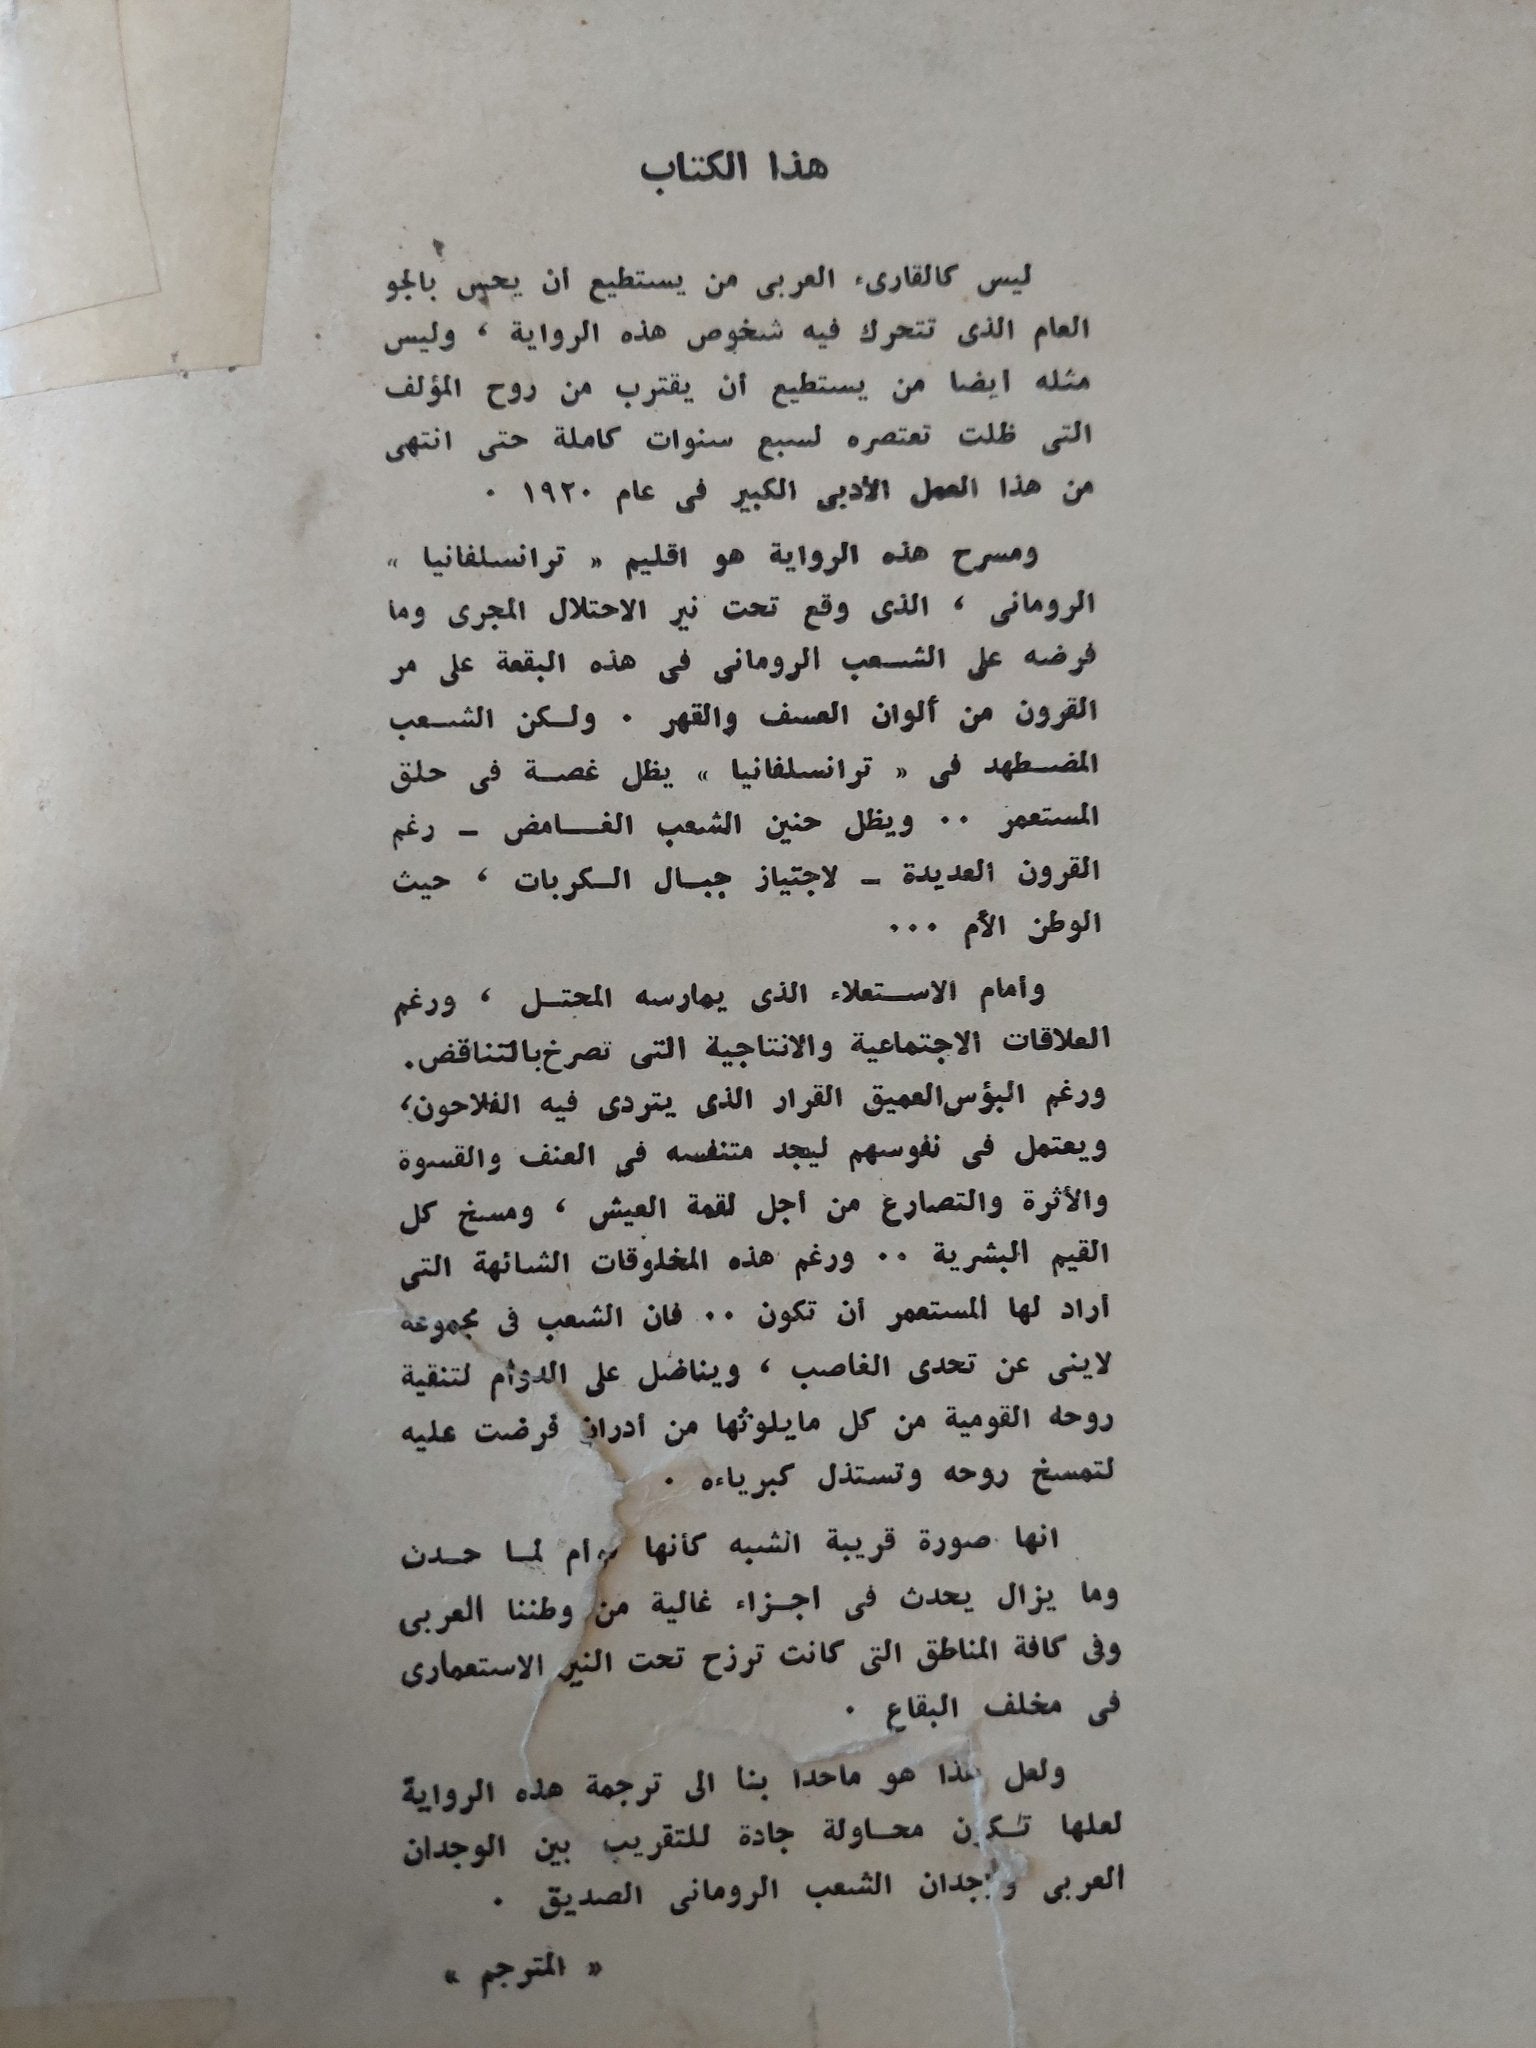 هذا الكتاب
ليس كالقارىء العربى من يستطيع أن يحس بالجو
العام الذى تتحرك فيه شخوص هذه الرواية ، وليس
مثله ايضا من يستطيع أن يقترب من روح المؤلف
التى ظلت تعتصره لسبع سنوات كاملة حتى انتهى
من هذا العمل الأدبى الكبير فى عام ١٩٢٠ ·
ومسرح هذه الرواية هو اقليم « ترانسلفانيا »
الرومانى ، الذى وقع تحت نير الاحتلال المجرى وما
فرضه على الشعب الرومانى فى هذه البقعة على مر
القرون من ألوان العسف والقهر · ولكن الشعب
المضطهد فى « ترانسلفانيا » يظل غصة فى حلق
المستعمر ·· ويظل حنين الشعب الغامض ـ رغم
القرون العديدة ـ لاجتياز جبال الكربات ، حيث
الوطن الأم ···
وأمام الاستعلاء الذى يمارسه المحتل ، ورغم
العلاقات الاجتماعية والانتاجية التى تصرخ بالتناقض.
ورغم البؤس العميق القرار الذى يتردى فيه الفلاحون،
ويعتمل فى نفوسهم ليجد متنفسه فى العنف والقسوة
والأثرة والتصارع من أجل لقمة العيش ، ومسخ كل
القيم البشرية ·· ورغم هذه المخلوقات الشائهة التى
أراد لها المستعمر أن تكون ·· فان الشعب فى مجموعه
لاينى عن تحدى الغاصب ، ويناضل على الدوام لتنقية
روحه القومية من كل مايلوثها من أدران فرضت عليه
لتمسخ روحه وتستذل كبرياءه ·
انها صورة قريبة الشبه كأنها توأم لما حدث
وما يزال يحدث فى اجزاء غالية من وطننا العربى
وفى كافة المناطق التى كانت ترزح تحت النير الاستعمارى
فى مخلف البقاع ·
ولعل هذا هو ماحدا بنا الى ترجمة هذه الرواية
لعلها تكون محاولة جادة للتقريب بين الوجدان
العربى ووجدان الشعب الرومانى الصديق ·
« المترجم »